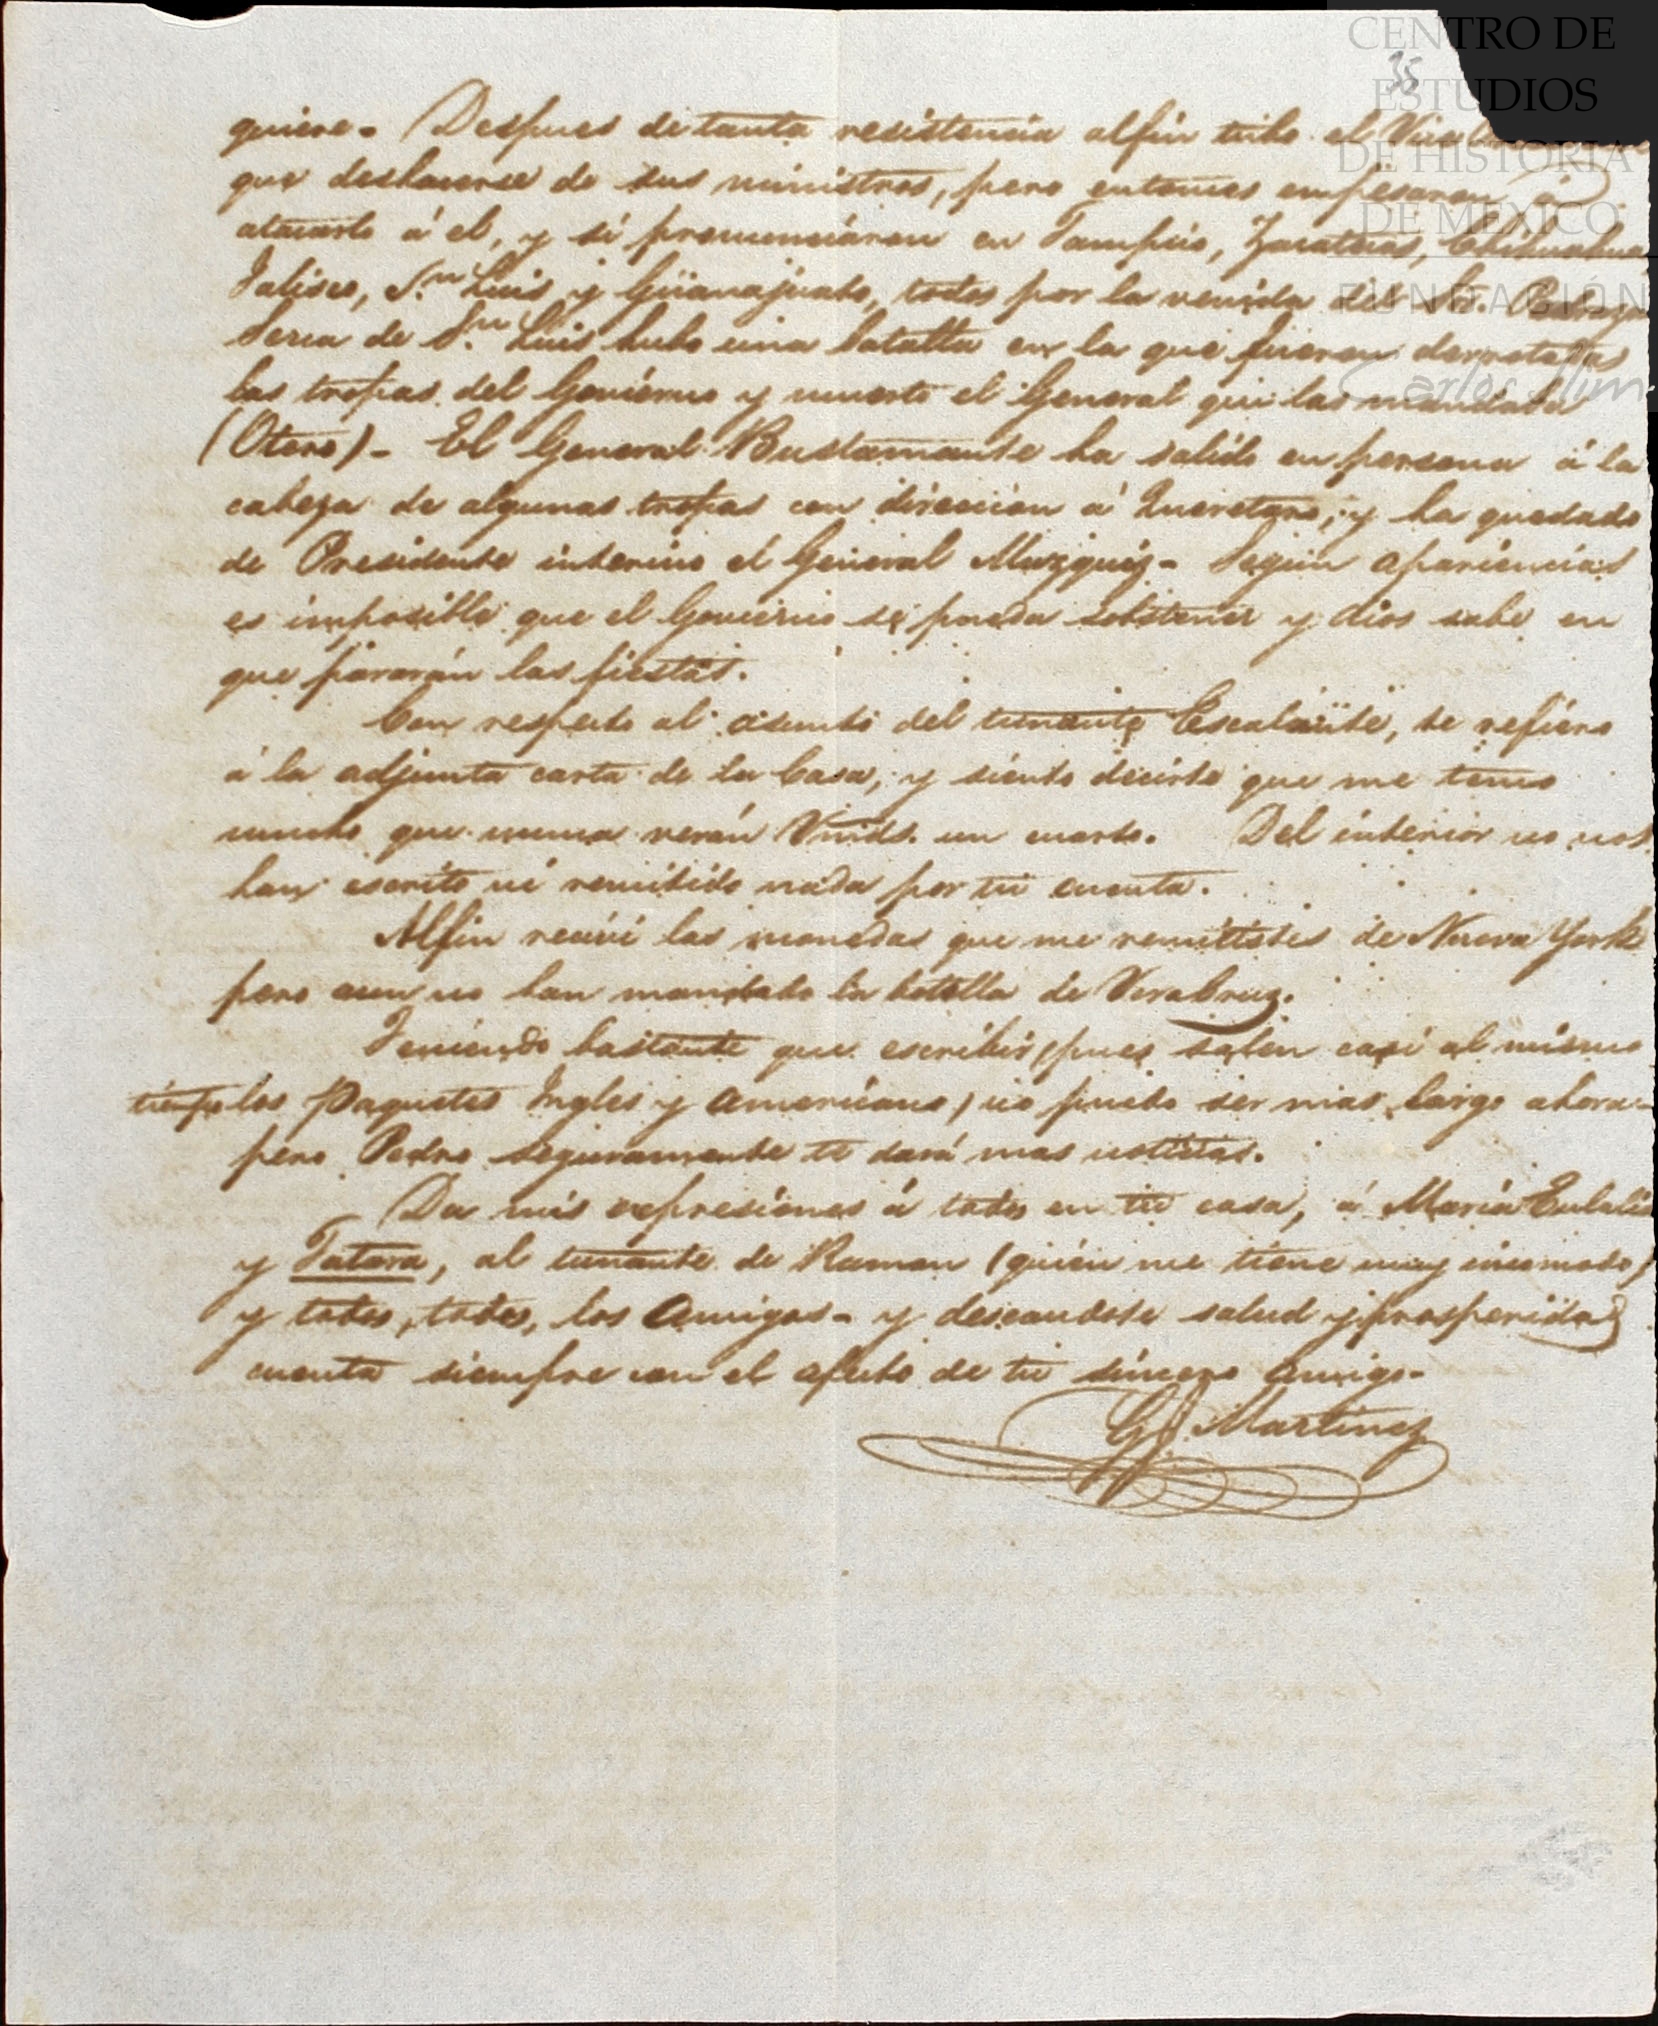 CENTRO DE
ESTUDIOS
DE HISTORIA
DE MÉXICO
FUNDACIÓN
Carlos Slim
35
quiere - Despues de tanta resistencia alfin tubo el Vice
que deshacerse de sus ministros, pero entonces empesaron á
atacarlo á el, y sé pronunciáron en Tampico, Zacatecas, Chihuahua,
Jalisco, S.n Luis y Güanajuato, todos por la venida del Sr. Pedraza
Serca de S.n Luis hubo una batalla en la que fueron derrotadas
las tropas del Govierno y muerto el General que las mandaba
(Otero) - El General Bustamante ha salido en persona á la
cabeza de algunas tropas con direccion á Queretaro, y ha quedado
de Presidente interino el General Muzquiz - Segun apariencias
es imposible que el Govierno se pueda sobstener y dios sabe en
que pararán las fiestas.
Con respecto al asunto del tunante Escalante, te refiero
á la adjunta carta de la Casa, y siento decirte que me temo
mucho que nunca verán Vmds. un cuarto. Del interior no nos
han escrito ni remitido nada por tu cuenta.
Alfin recivi las monedas que me remitistes de Nueva York
pero aun no han mandado la botella de VeraCruz.
Teniendo bastante que escribir (pues salen casi al mismo
tiempo los Paquetes Ingles y Americano) no puedo ser mas largo ahora -
pero Pedro seguramente te dará mas noticias.
Da mis expresiones á todos en tu casa, á Maria Eulalia
y Tatara, al tunante de Ramon (quien me tiene muy incomodo)
y todos, todos, los Amigos - y deseandote salud y prosperidad
cuenta siempre con el afecto de tu sincero Amigo -
G J Martinez